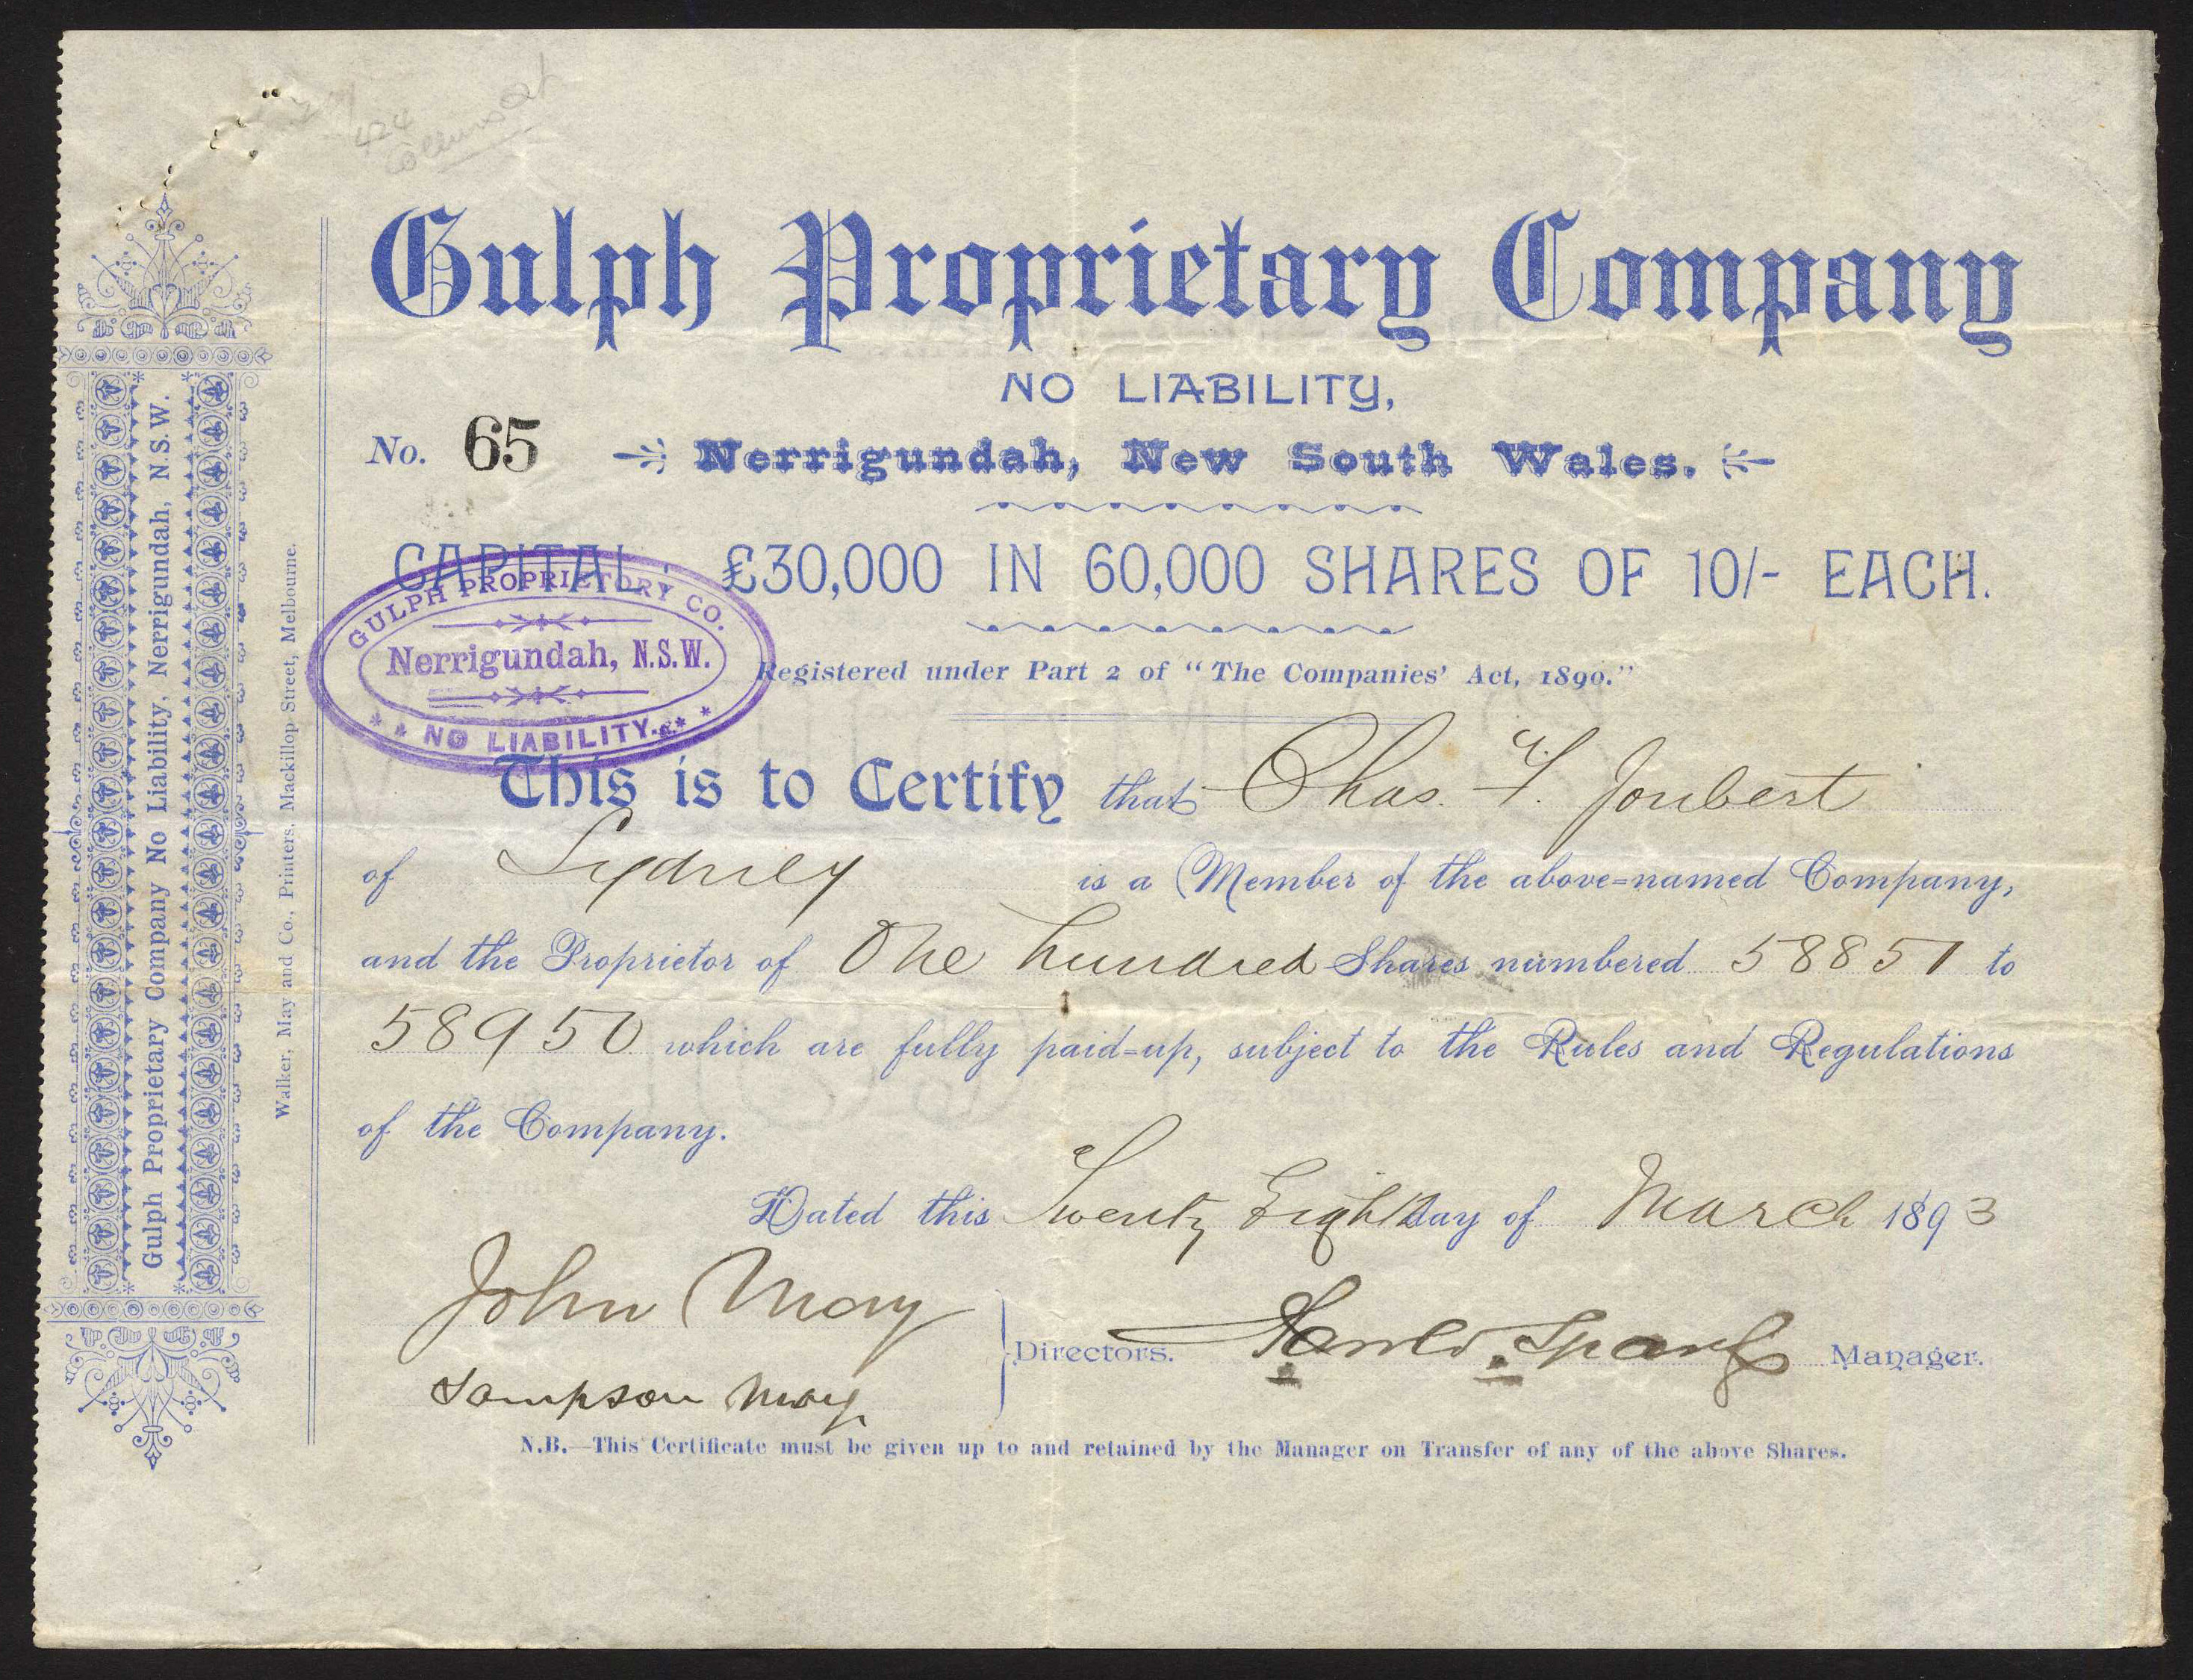 424
Collins St
Gulph Proprietary Company
NO LIABILITY,
No. 65 Nerrigundah, New South Wales.
CAPITAL : £30,000 IN 60,000 SHARES OF 10/- EACH.
GULPH PROPRIETORY CO.
Nerrigundah, N.S.W.
NO LIABILITY.
Registered under Part 2 of "The Companies' Act, 1890."
This is to Certify that Chas. F. Joubert
of Sydney is a Member of the above-named Company,
and the Proprietor of One hundred Shares numbered 58851 to
58950 which are fully paid-up, subject to the Rules and Regulations
of the Company.
Dated this Twenty Eighth day of March 1893
John May
Directors. Manager.
Sampson May
N.B.—This Certificate must be given up to and retained by the Manager on Transfer of any of the above Shares.
Gulph Proprietary Company No Liability, Nerrigundah, N.S.W.
Walker, May and Co., Printers, Mackillop Street, Melbourne.